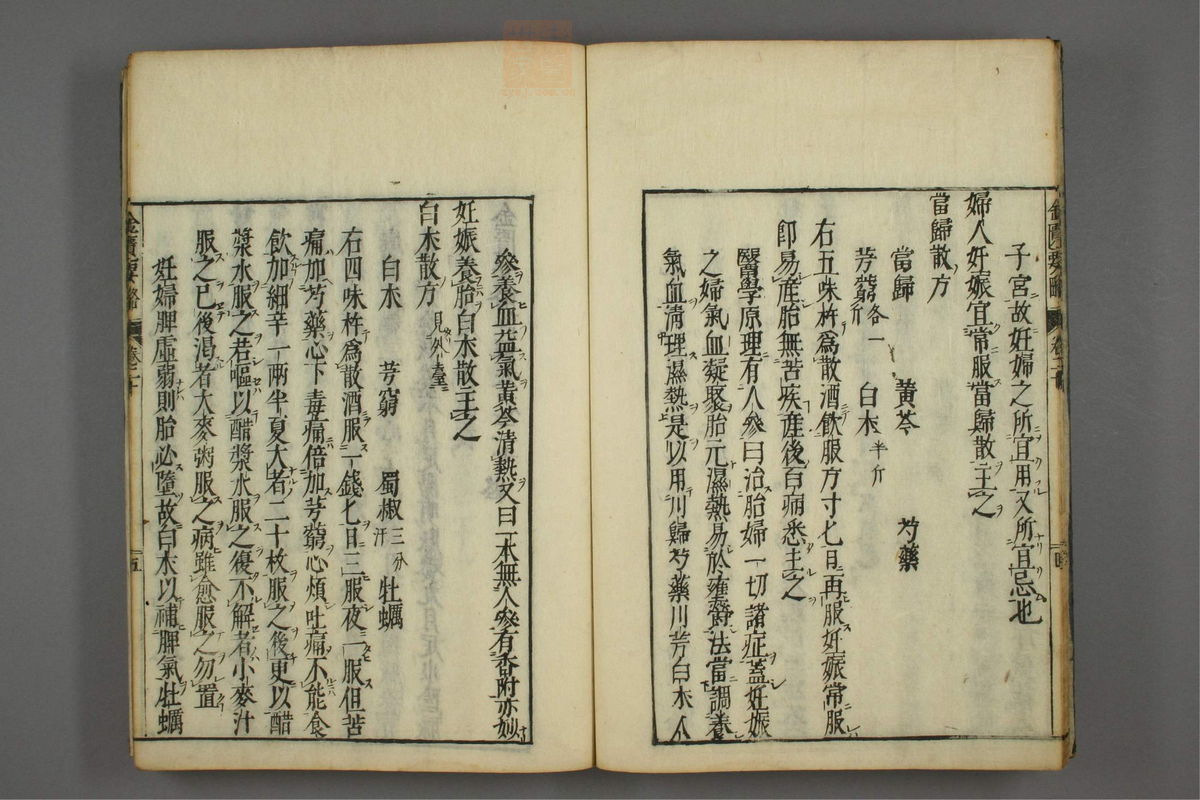 子宮故妊婦之所宜用又所宜忌也
婦人妊娠宜常服當歸散主之
當歸散方
當歸 黃芩 芍藥
芎藭各一斤 白朮半斤
右五味杵爲散酒飲服方寸匕日再服妊娠常服
卽易產胎無苦疾產後百病悉主之
醫學原理有人參曰治胎婦一切諸症蓋妊娠
之婦氣血凝聚胎元濕熱易於壅鬱法當調養
氣血清理濕熱是以用川歸芍藥川芎白朮人
參養血益氣黃芩清熱又曰一本無人參有香附亦妙
妊娠養胎白朮散主之
白朮散方見外臺
白朮 芎藭 蜀椒三分汗 牡蠣
右四味杵爲散酒服一錢匕日三服夜一服但苦
痛加芍藥心下毒痛倍加芎藭心煩吐痛不能食
飲加細辛一兩半夏大者二十枚服之後更以醋
漿水服之若嘔以醋漿水服之復不解者小麥汁
服之已後渴者大麥粥服之病雖愈服之勿置
妊婦脾虛弱則胎必墮故白朮以補脾氣牡蠣
金匱要略 卷二十 五